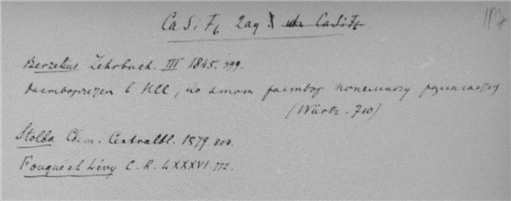 CaSiF6 2aq CaSiF6
Berzelius Lehrbuch. III 1845. 399.
растворяется в HCl, но этот раствор понемногу
(Würtz. 710)
Stolba Chem. Centralbl. 1879. 208.
Fouque et Lévy C. R. LXXXVI. 772.